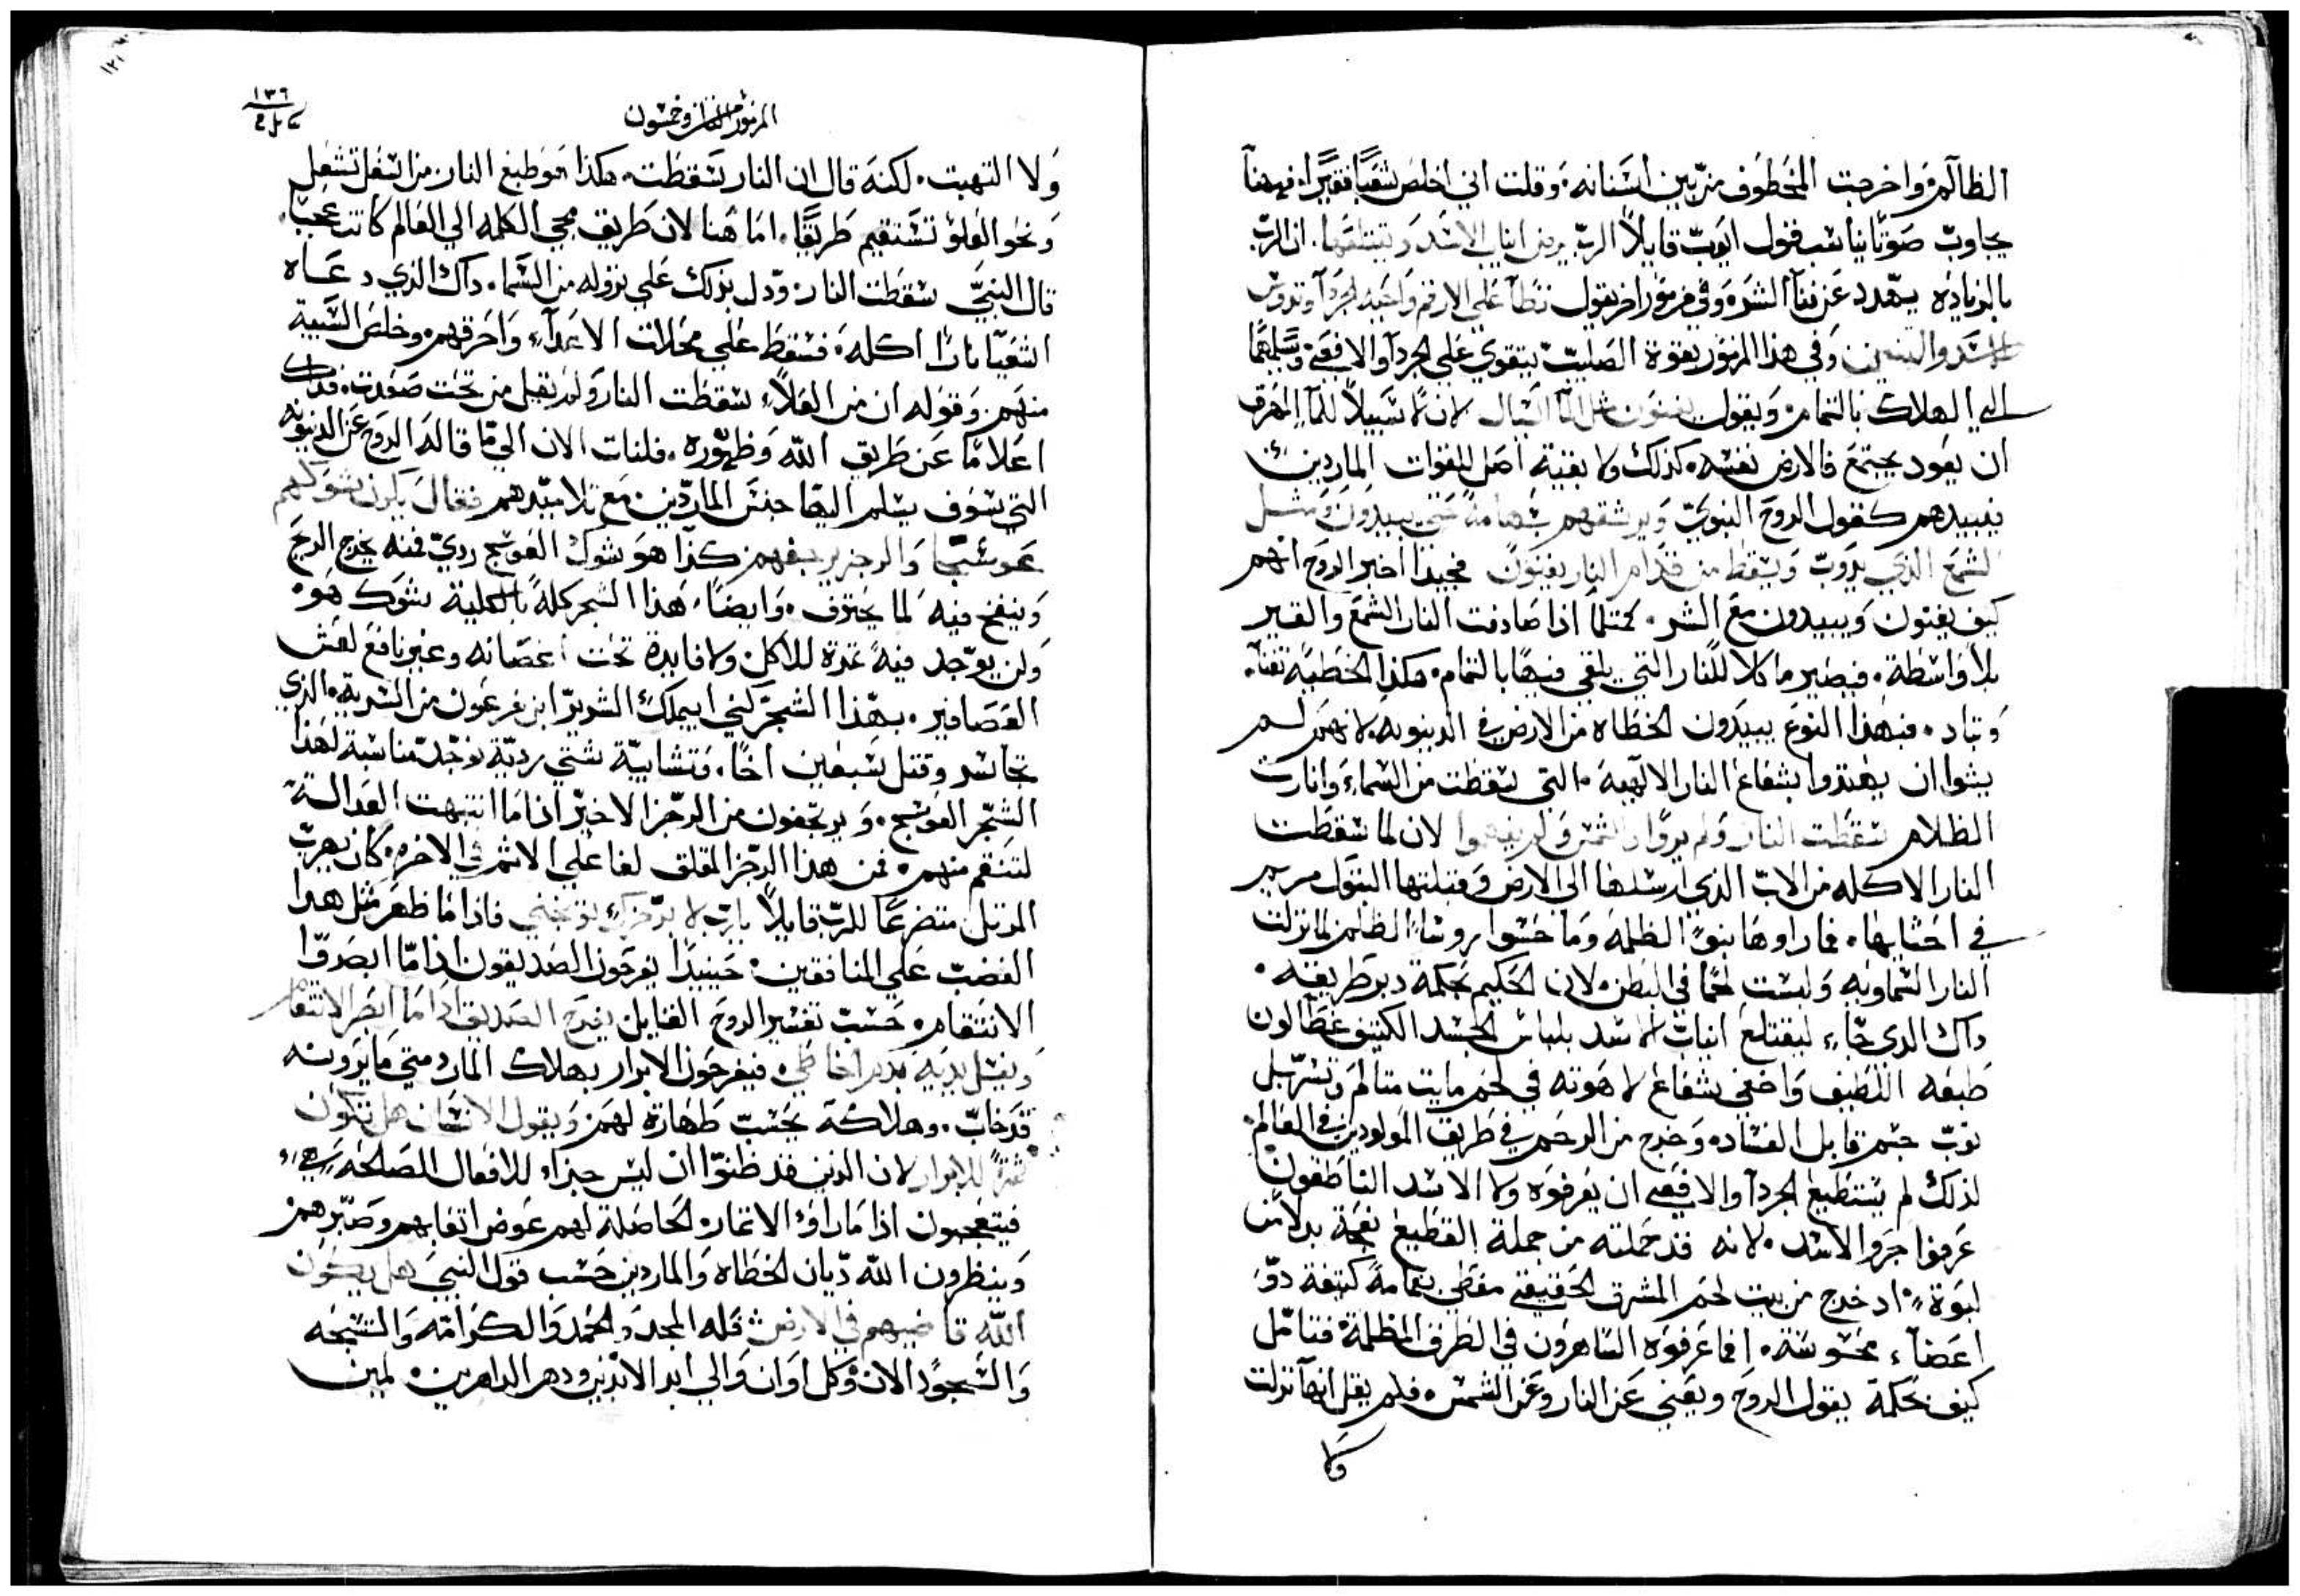 الظالم، واخرجت المخطوف من بين اسنانه، وقلت اني اخلص شعبًا فقيرًا، فههنا
يجاوب صوتًا يناسب قول ايوب قايلاً الرب يرض انياب الاسد ويقتلعها، ان الرب
بالزياده يهدد عن فنآ الشره، وفي مزمور اخر يقول تطا علي الارقم واحيه الجردآ وتدوس
الاسد والتنين وفي هذا المزمور بقوة الصليب يتقوي علي الجردآ والافعي، ويسلمهما
الي الهلاك بالتمام، ويقول يفنون مثل المآ السايل لان لا سبيلاً للمآ المهرق
ان يعود يجتمع فالارض نفسه، كذلك ولا بقية اصل للقوات الماردين
فيبيدهم كقول الروح النبوي ويرشقهم بسهامه حتي يبيدون ومثل
الشمع الذي يدوب ويسقط من قدام النار يفنون فحينيذا اخبر الروح انهم
كيف يفنون ويبيدون مع الشر، كمثلما اذا صادفت النار الشمع والقير
بلا واسطة، فيصير ماكلا للنار التي يلقي فيها بالتمام، هكذا الخطيه تفنآ
وتباد، فبهذا النوع يبيدون الخطاه من الارض في الدينونه، لانهم لم
يشوا ان يهتدوا بشعاع النار الالهيه، التي سقطت من السماء، وانارت
الظلام سقطت النار ولم يروا الشمس ولم يفهموا لان لما سقطت
النار الاكله من الاب الذي ارسلها الي الارض وقبلتها البتول مريم
في احشايها، فما راوها بنو الظلمه وما حسوا روساء الظلام، لما نزلت
النار السماويه ولبست لحمًا في البطن، لان الحكيم بحكمة دبر طريقته،
داك الدي جآء ليقتلع انياب الاسد بلباس الجسد الكثيف غطا لون
طبعه اللطيف واخفي شعاع لاهوته في لحم مايت متالم وتسربل
توب جسم قابل الفساد، وخرج من الرحم في طريق المولودين في العالم،
لذلك لم يستطيع الجردآ والافعي ان يعرفوه ولا الاسد الناطقون
عرفوا جرو الاسد، لانه قد حملته من جملة القطيع نعجة بدلاً من
لبوة، اد خرج من بيت لحم المشرق الحقيقي مغطي بغمامة كتيفة دو
اعضآء محسوسة، فما عرفوه الساهرون في الطرق المظلمة، فتامل
كيف بحكمة يقول الروح ويعني عن النار وعن الشمس، فلم يقل انها نزلت
ولا
المزمور السابع وخمسون
١٣٦
ولا التهبت، لكنه قال ان النار سقطت، هكذا هو طبع النار من اسفل تشعل
ونحو العلو تستقيم طريقًا، اما هنا لان طريق مجي الكلمه الي العالم كانت عجبًا
قال النبي سقطت النار، ودل بذلك علي نزوله من السماء، داك الذي دعاه
اشعيا نارًا اكله، فسقط علي محلات الاعدآء واحرقهم، وخلص السبية
منهم، وقوله ان من العلاء سقطت النار ولم يقل من تحت صعدت، فداك
اعلامًا عن طريق الله وظهوره، فلنات الان الي ما قاله الروح عن الدينونه
التي سوف يسلم اليها جنس الماردين مع تلاميدهم فقال يكون شوكهم
عوسجًا والرجز يرجفهم كذا هو شوك العوسج ردي فمنه يخرج الريح
وينفخ فيه لما يحترق، وايضًا هذا الشجر كله بالكلية شوك هو،
ولن يوجد فيه تمرة للاكل، ولا فايدة تحت اغصانه وغير نافع لعش
العصافير، بهذا الشجر كني ابيملك الشرير ابن غرعون من السرية، الذي
تجاسر وقتل سبعين اخًا، وتشابيه شتي رديّة توجد مناسبة لهذا
الشجر العوسج، ويرتجفون من الرجز الاخير اذا ما انتبهت العدالة
لتنتقم منهم، فمن هذا الرجز المقلق لفاعلي الاثم في الاخره، كان يهرب
المرتل متضرعًا للرب قايلاً يارب لا برجزك توبخني فاذا ما ظهر مثل هدا
الغضب علي المنافقين، حينيذا يفرحون الصديقون اذا ما ابصروا
الانتقام، حسب تفسير الروح القايل يفرح الصديق اذا ما ابصر الانتقام
ويغسل يديه بدم الخاطي، فيفرحون الابرار بهلاك المارد متي ما يرونه
قد خاب، وهلاكه يحسب طهارة لهم ويقول الانسان هل تكون
ثمرة للابرار لان الذين قد ظنوا ان ليس جزاء للافعال الصالحه
فيتعجبون اذا ما راوا الاتمار، الحاصلة لهم عوض اتعابهم وصبرهم
وينظرون الله ديان الخطاه والماردين حسب قول النبي هل يكون
الله قاضيهم في الارض فله المجد والحمد والكرامة والتسبحه
والسجود الان وكل اوان والي ابد الابدين ودهر الداهرين، امين